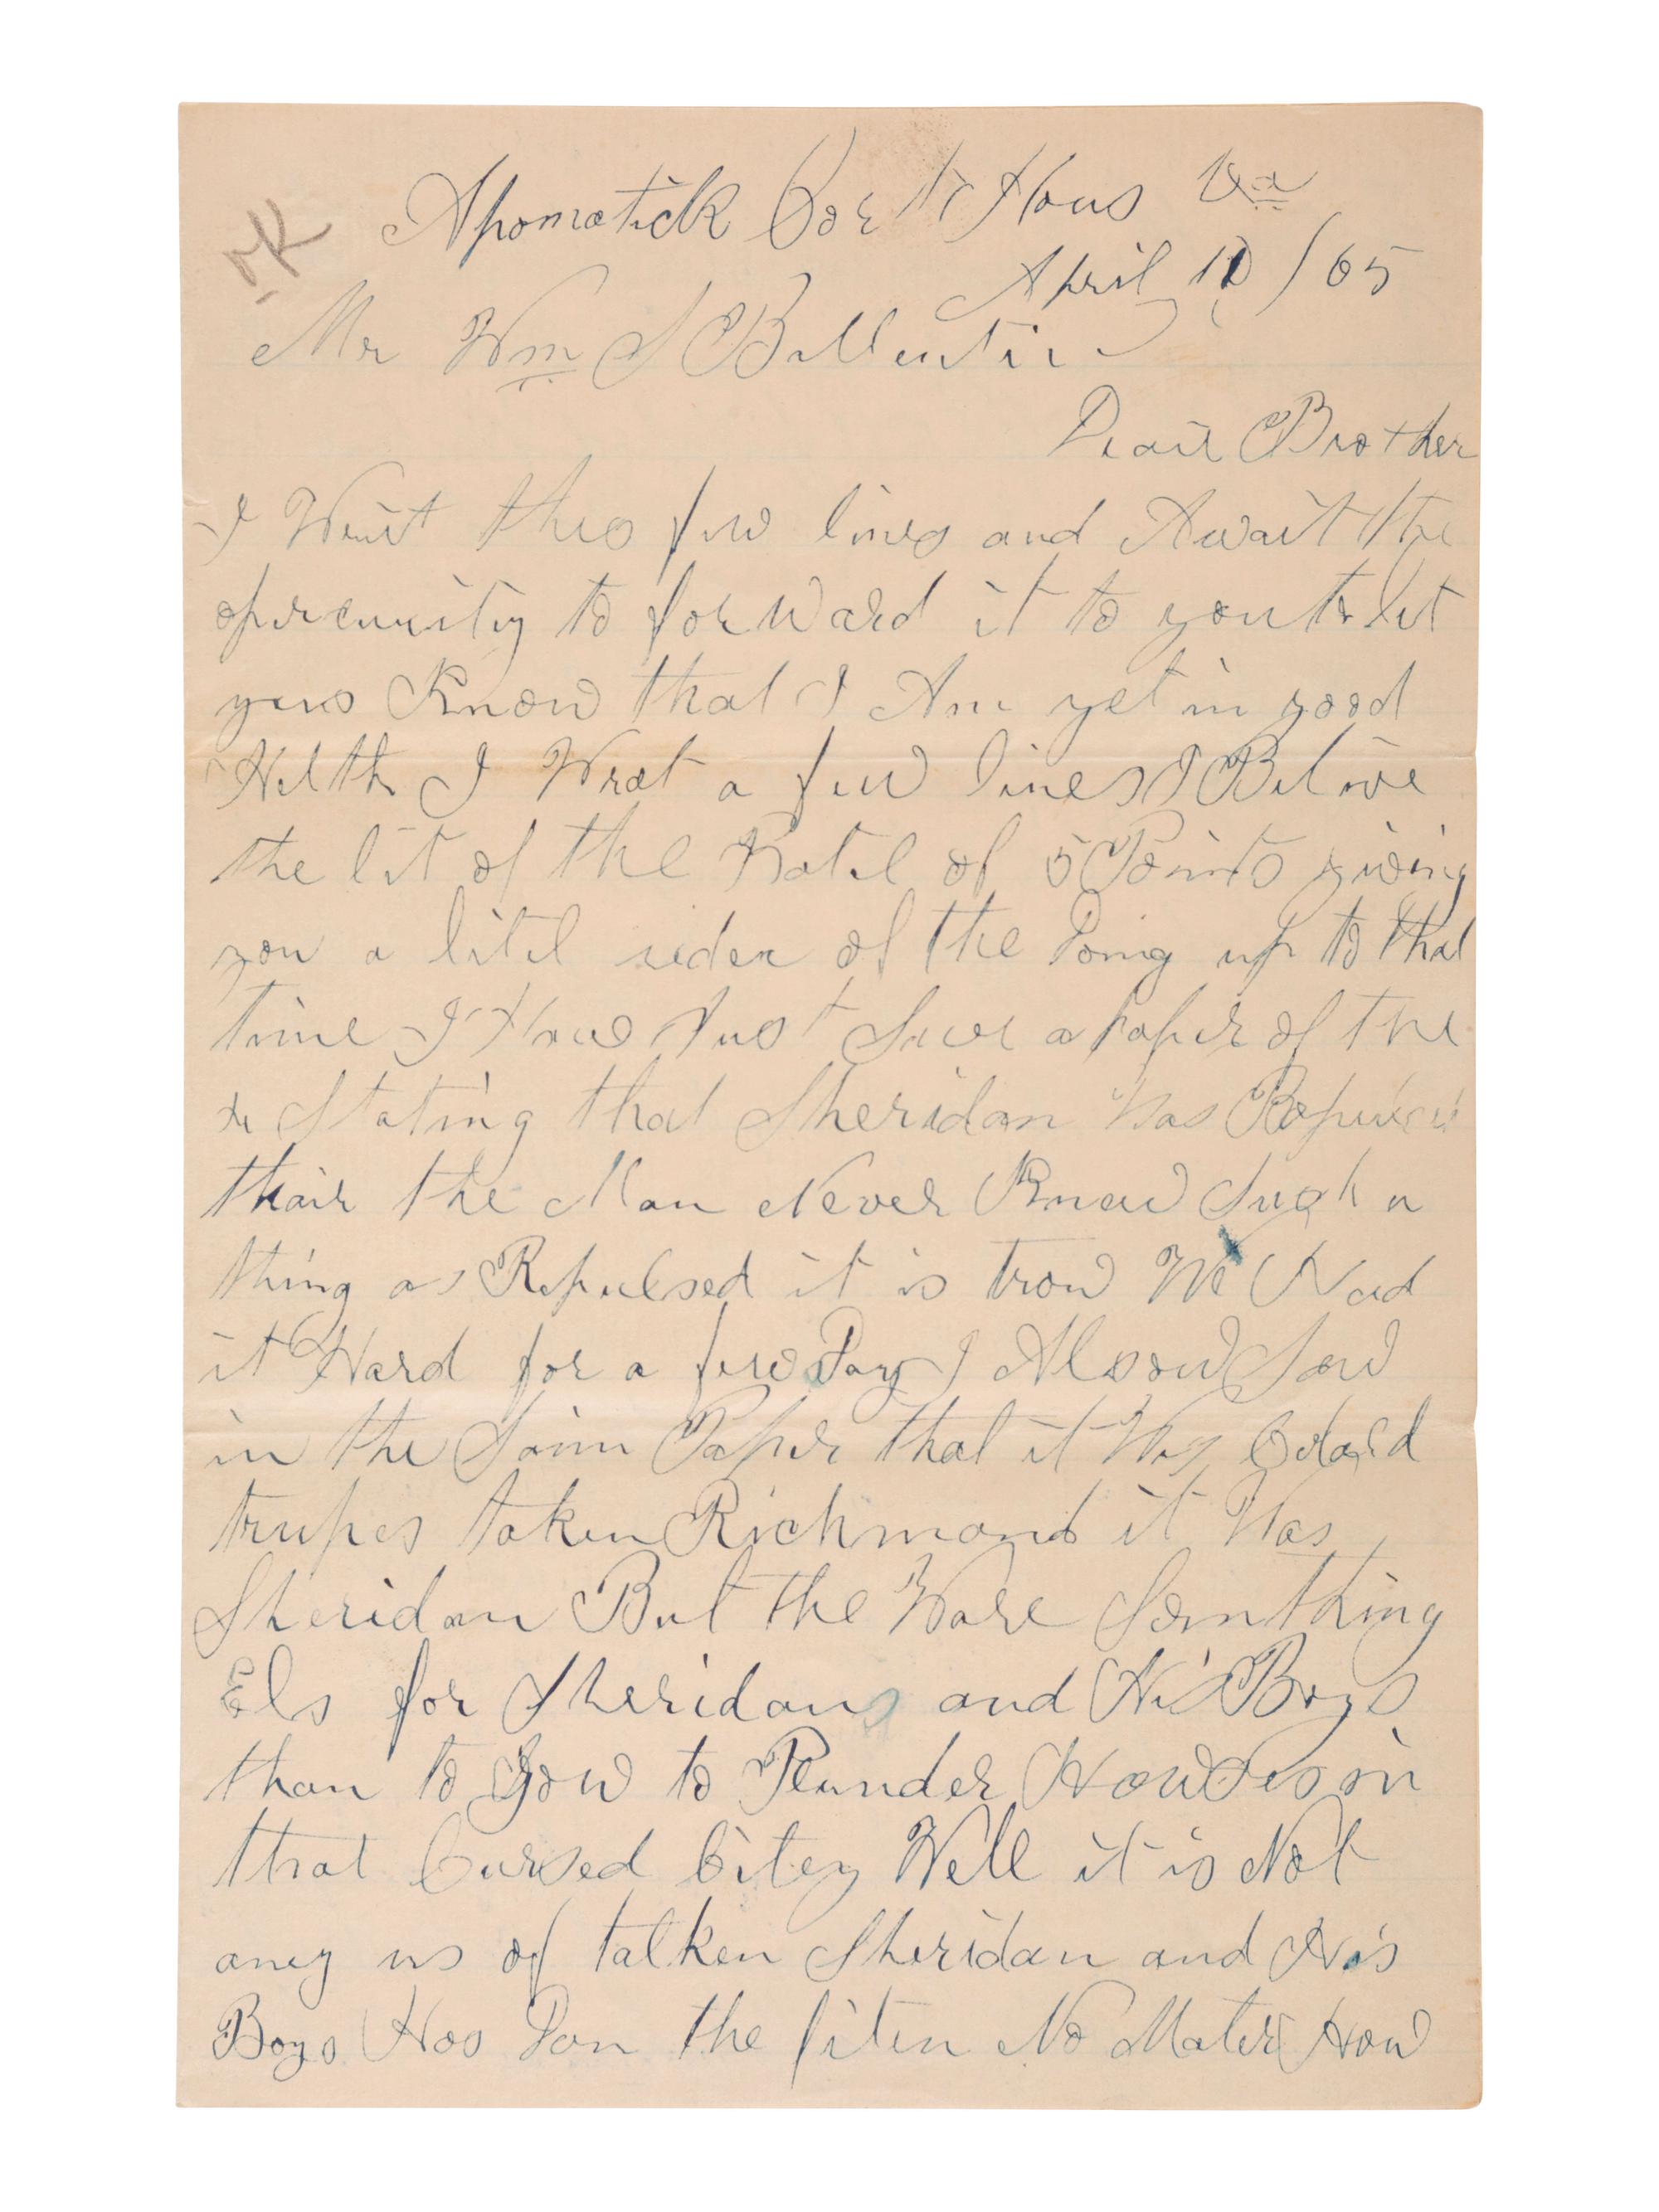 OK
Apomatick Cort Hous Va
April 10 / 65
Mr Wm S Ballentine
Dear Brother
I Writ thes few lines and Await the
opercunity to forward it to you to let
you Know that I Am yet in good
Helth I Wrat a few lines I Belive
the of the Batel of 5 Points giving
you a litel ider of the Doing up to that
time I Have Just Saw a paper of the
Stating that Sheridan Was Repulsed
thair the Man Never Knew Such a
thing as Repulsed it is trow We Had
it Hard for a few Day I Alsow Saw
in the Saim Paper that it Was Colard
trupes taken Richmond it Was
Sheridan But the Ware Somthing
Els for Sheridan and His Boys
than to Gow to Plunder Howses in
that Cursed Citey Well it is Not
aney us of talken Sheridan and His
Boys Has Don the fiten No Mater How